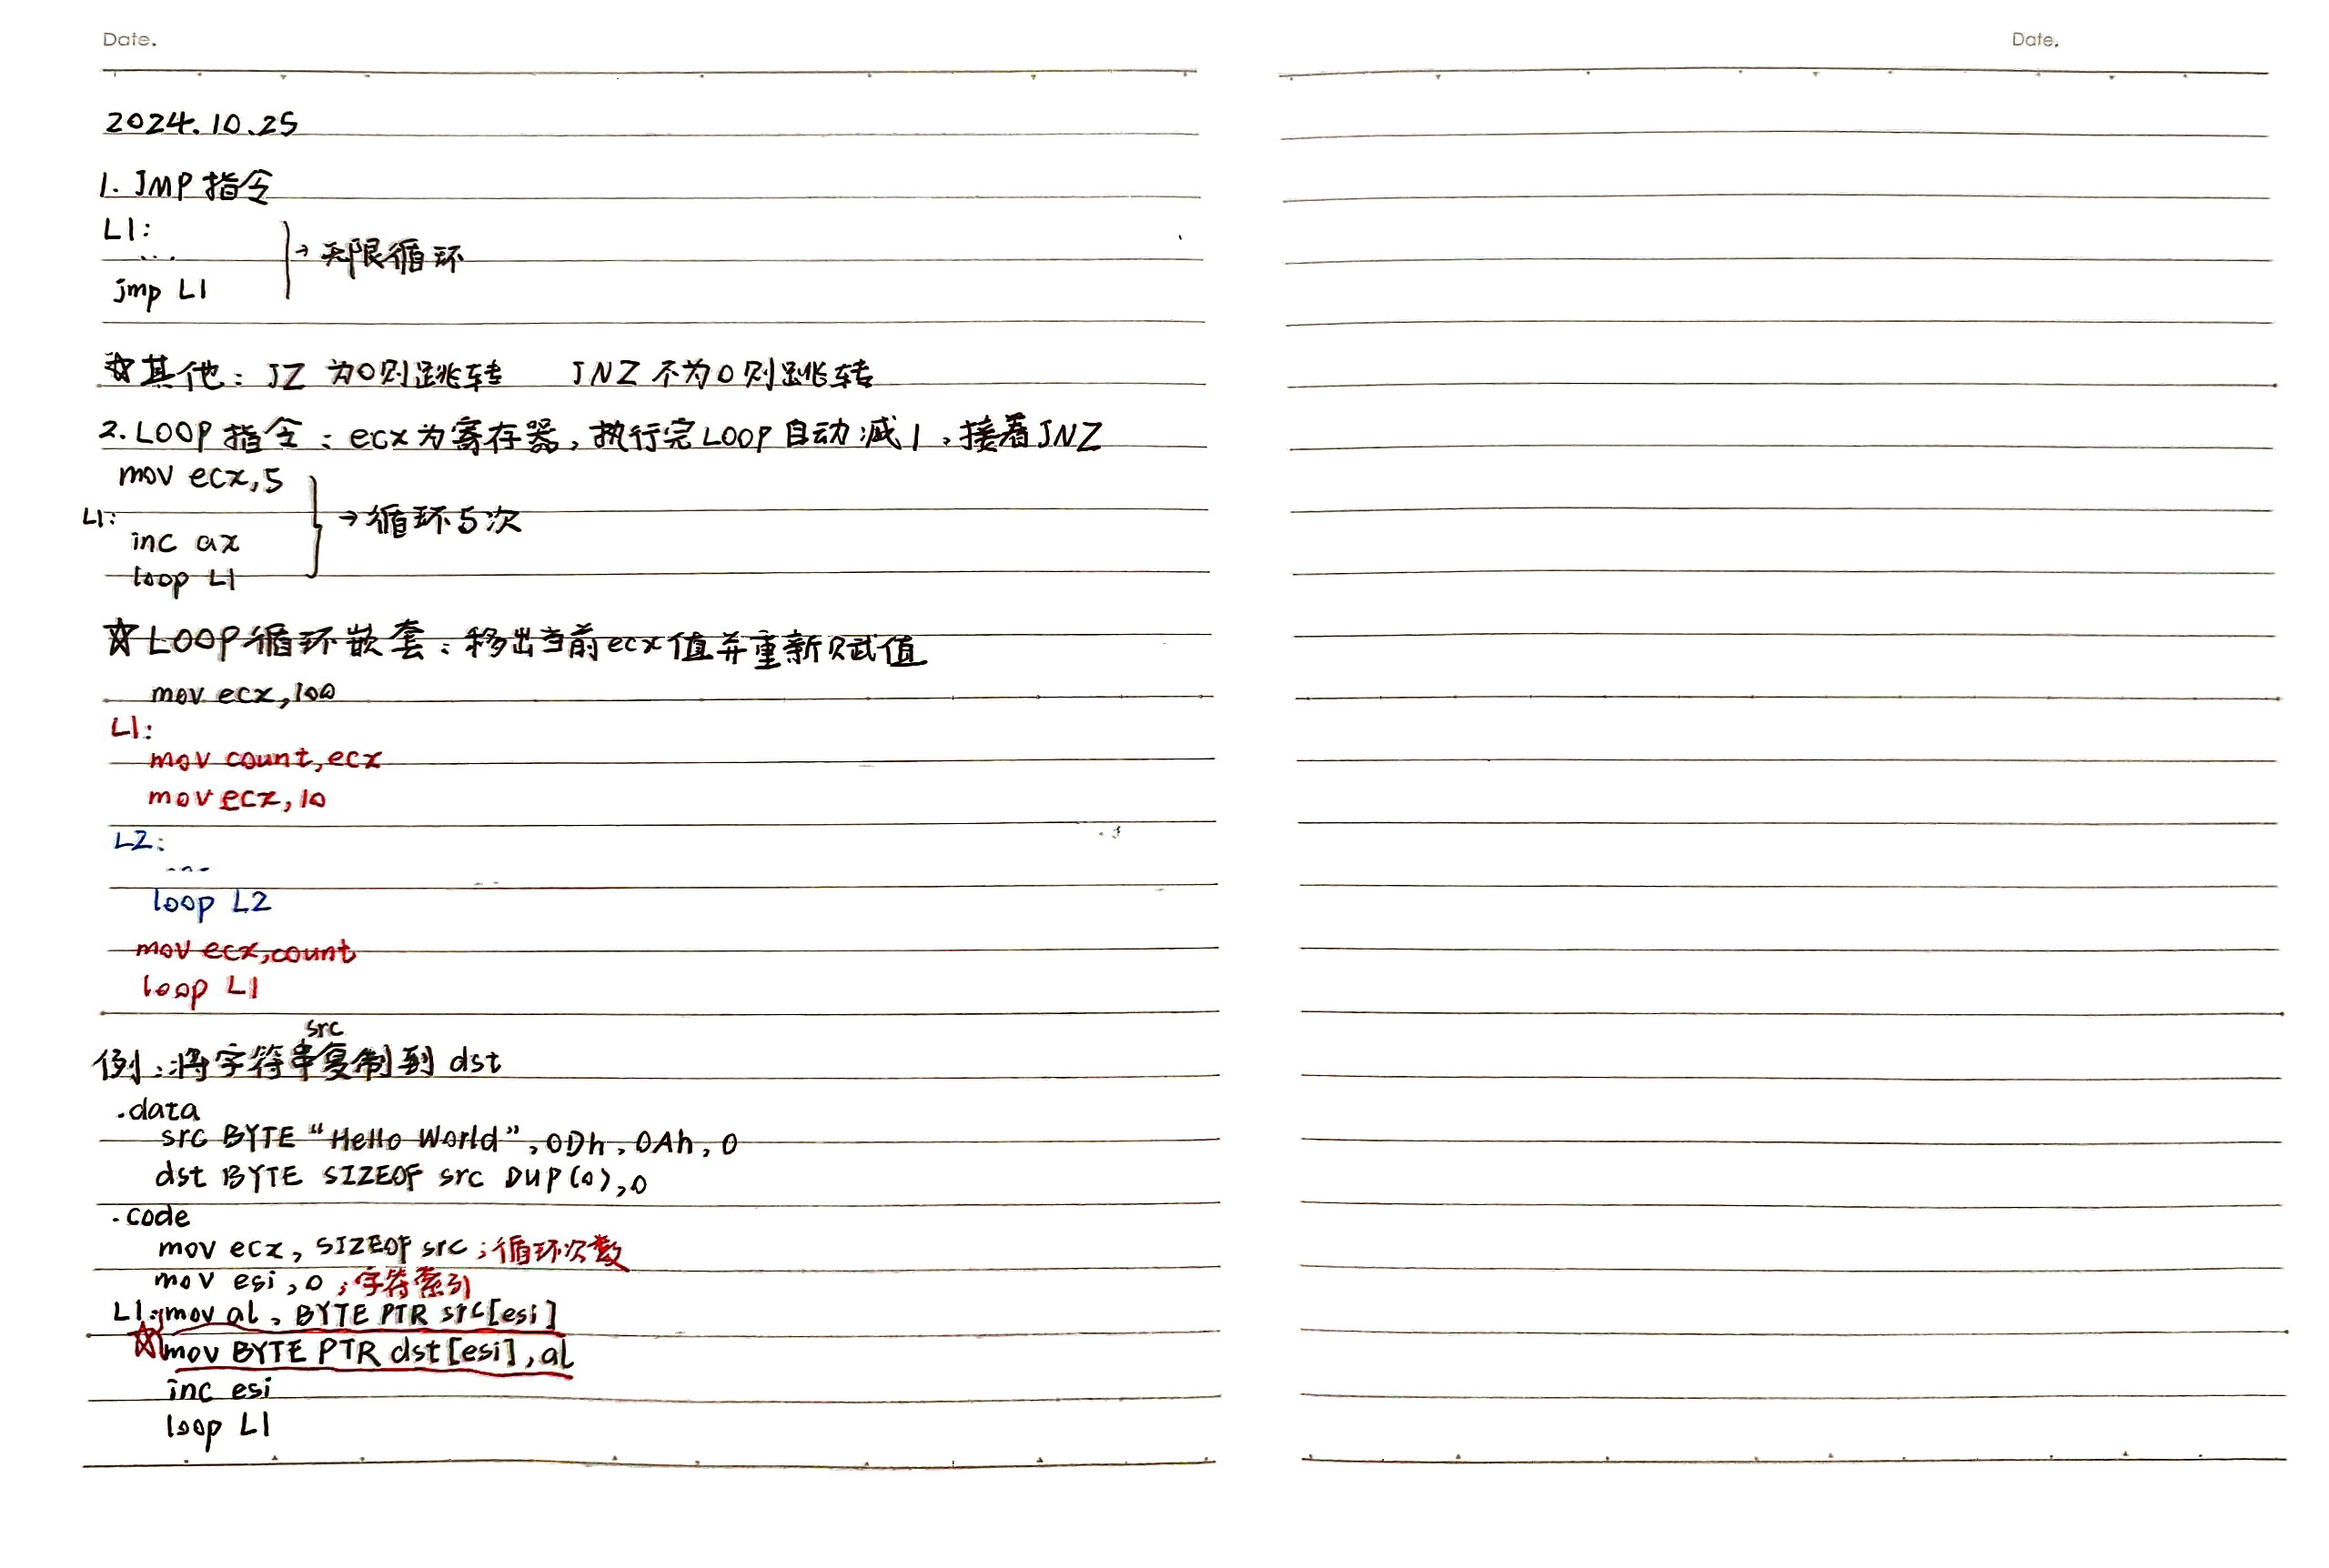 Date.
Date.
2024.10.25
1. JMP 指令
L1:
...
jmp L1
→ 无限循环
☆其他: JZ 为0则跳转 JNZ 不为0则跳转
2. LOOP 指令: ecx为寄存器, 执行完LOOP自动减1, 接着JNZ
mov ecx,5
L1:
inc ax
loop L1
→循环5次
☆LOOP循环嵌套: 移出当前ecx值并重新赋值
mov ecx,100
L1:
mov count,ecx
mov ecx,10
L2:
...
loop L2
mov ecx,count
loop L1
src
例: 将字符串复制到 dst
.data
src BYTE "Hello World",0Dh,0Ah,0
dst BYTE SIZEOF src DUP(0),0
.code
mov ecx, SIZEOF src ;循环次数
mov esi,0 ;字符索引
L1: mov al, BYTE PTR src[esi]
☆ mov BYTE PTR dst[esi],al
inc esi
loop L1